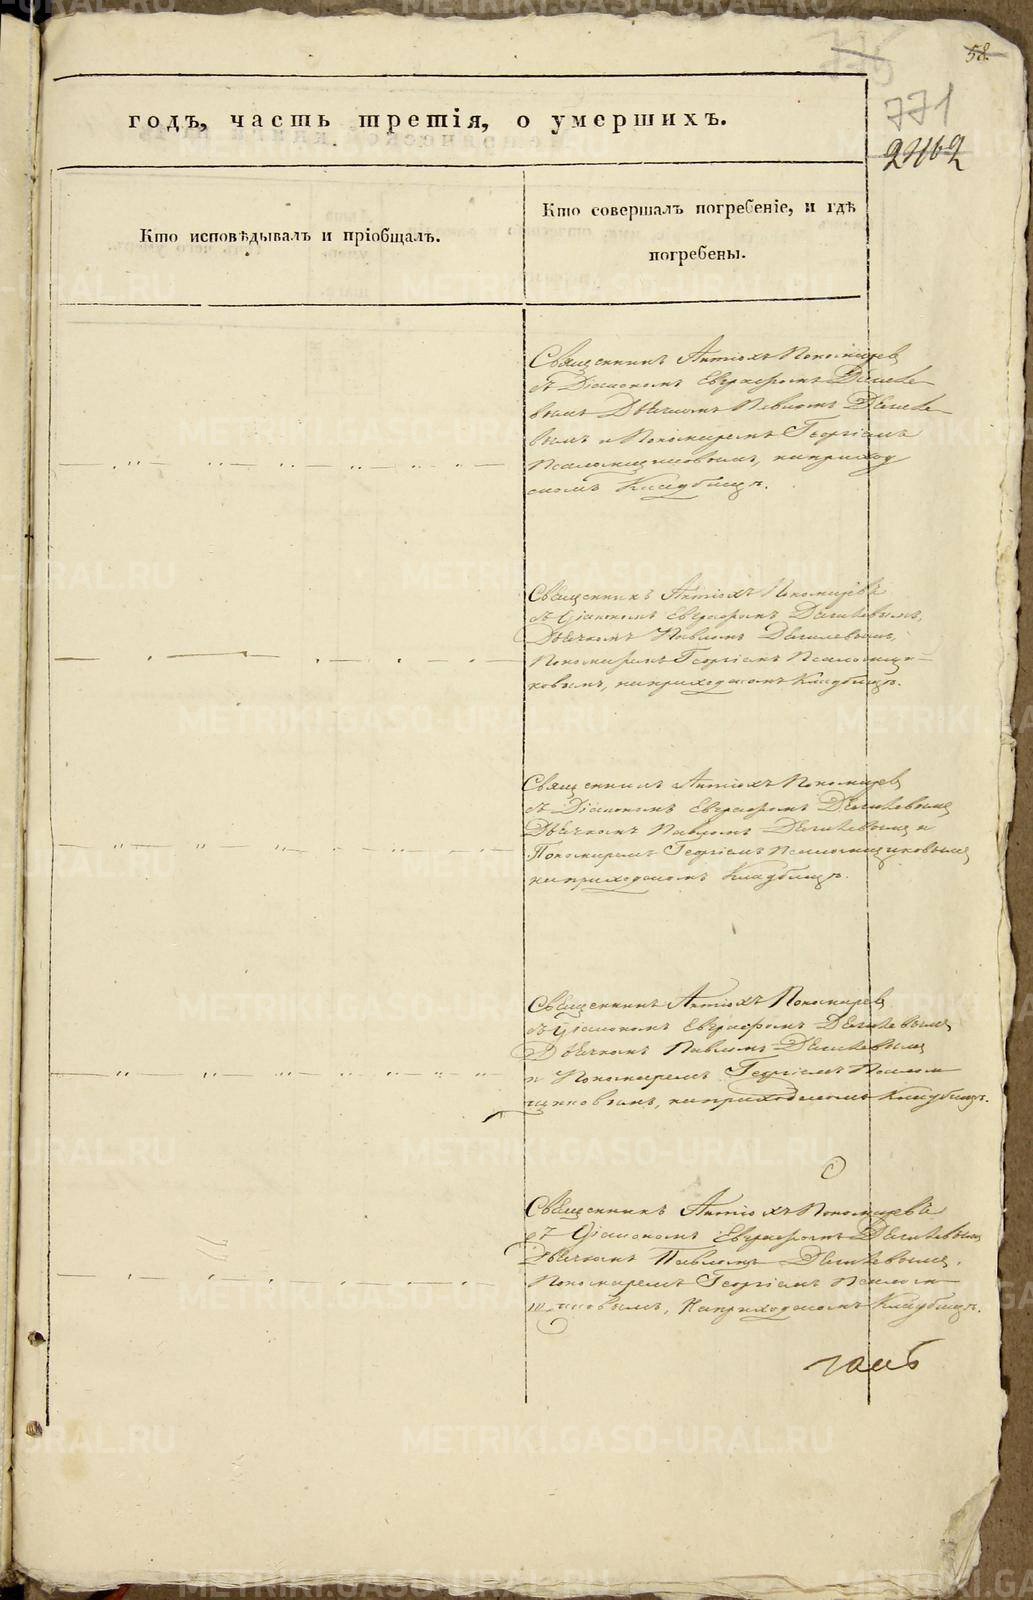 58.
771
2462
годъ, часть третія, о умершихъ.
Кто исповѣдывалъ и пріобщалъ.
Кто совершалъ погребеніе, и гдѣ
погребены.
Священникъ Антіохъ Пономарев
съ Діакономъ Евграфомъ
вымъ Дьячкомъ Павломъ
вымъ и Пономаремъ Георгіемъ
Псаломщиковымъ, на приход
скомъ Кладбищѣ.
Священникъ Антіохъ Пономаревъ
съ Діакономъ Евграфомъ
Дьячкомъ Павломъ
Пономаремъ Георгіемъ Псаломщи-
ковымъ, на приходскомъ Кладбищѣ.
Священникъ Антіохъ Пономарев
съ Діакономъ Евграфомъ
Дьячкомъ Павломъ и
Пономаремъ Георгіемъ Псаломщиковымъ
на приходскомъ Кладбищѣ.
Священникъ Антіохъ Пономарев
съ Діакономъ Евграфомъ
Дьячкомъ Павломъ
и Пономаремъ Георгіемъ Псалом
щиковымъ, на приходскомъ Кладбищѣ.
Священникъ Антіохъ Пономаревъ
съ Діакономъ Евграфомъ
Дьячкомъ Павломъ
Пономаремъ Георгіемъ Псалом
щиковымъ, На приходскомъ Кладбищѣ.
METRIKI.GASO-URAL.RU